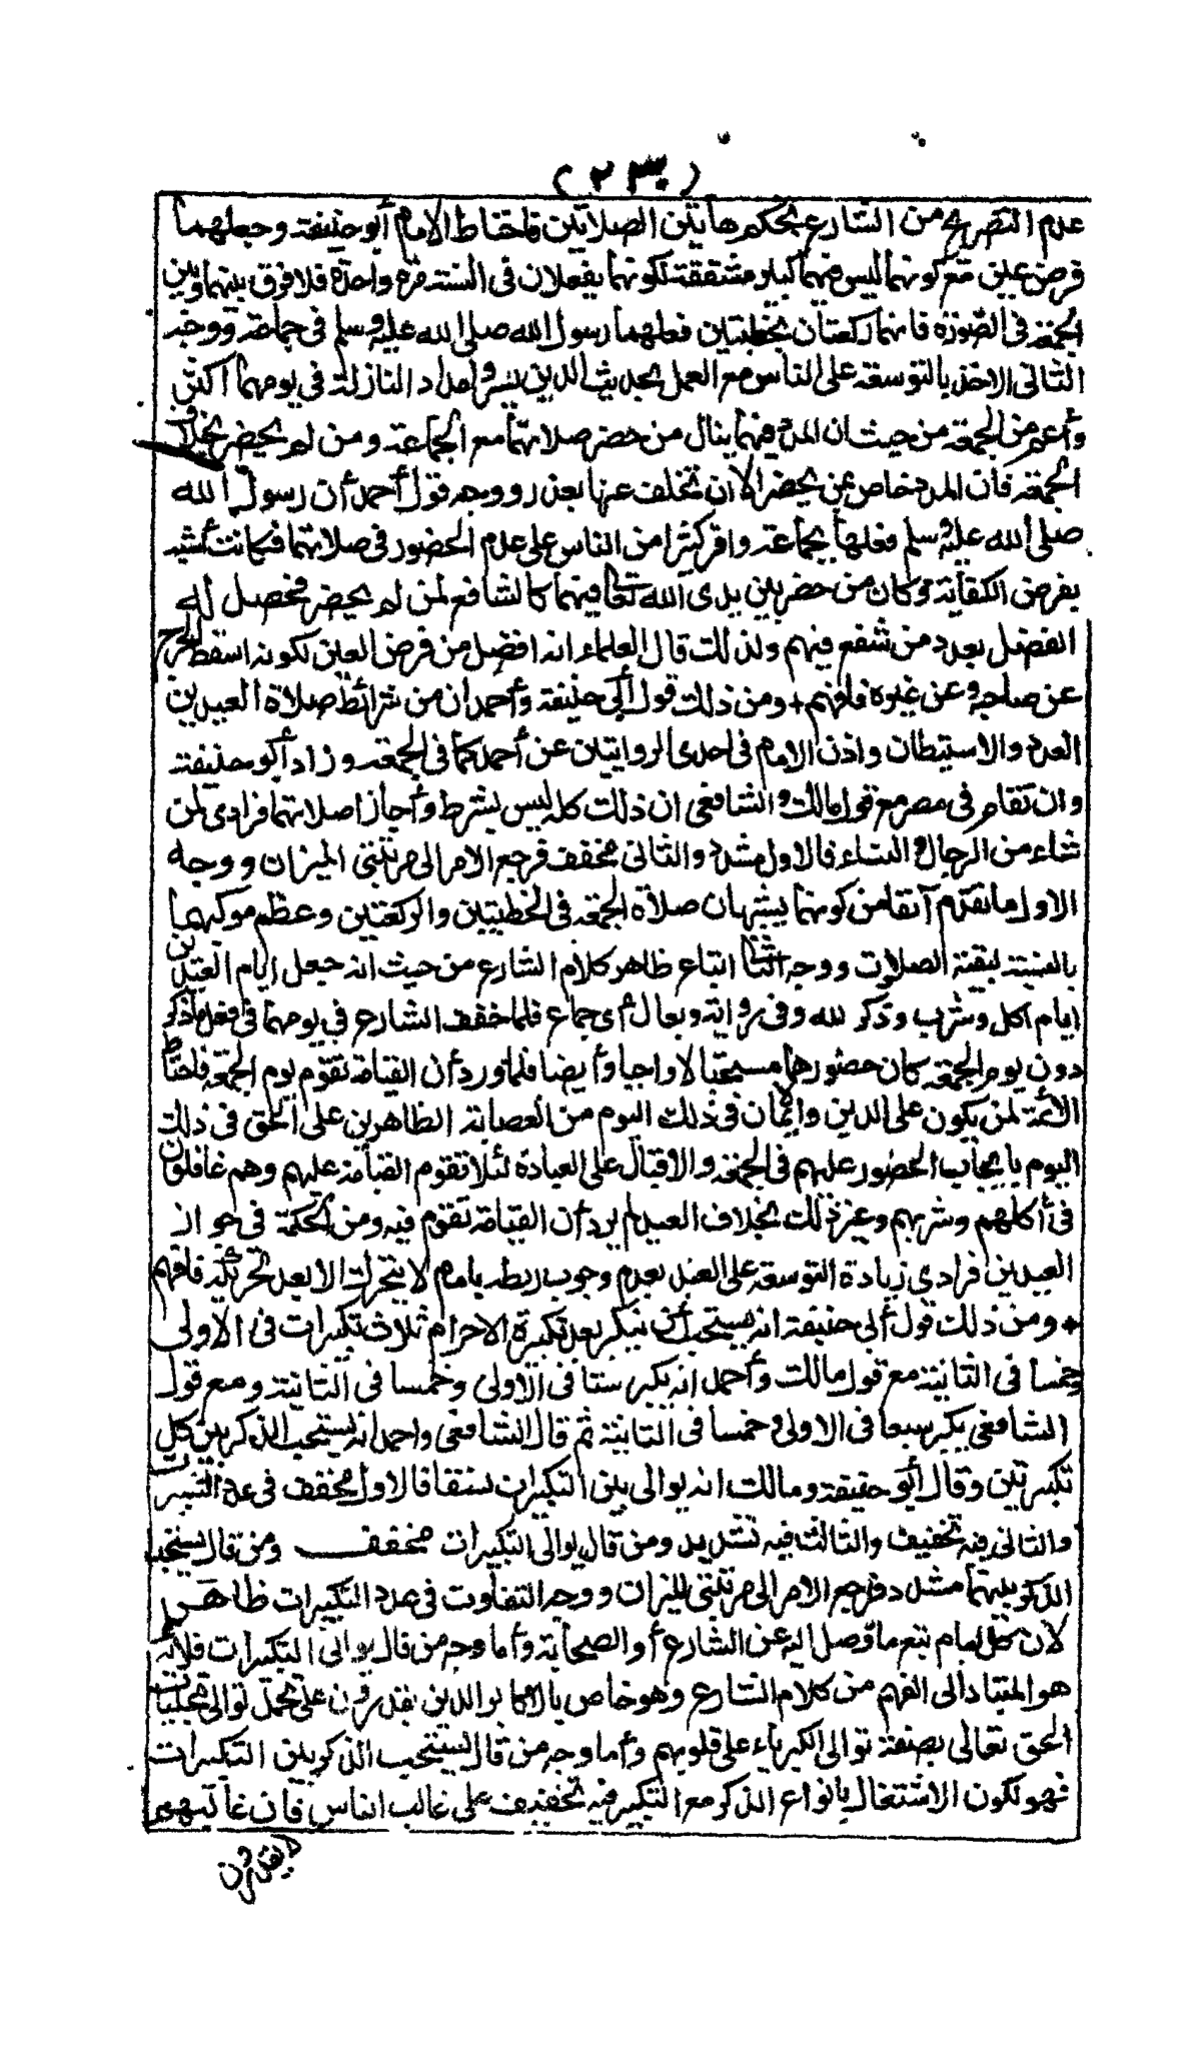 (٢٣٠)
عدم التصريح من الشارع بحكم هاتين الصلاتين فاحتاط الامام أبو حنيفة وجعلهما
فرض عين مع كونهما ليس فيهما كبير مشقة لكونهما يفعلان فى السنة مرة واحدة فلا فرق بينهما وبين
الجمعة فى الصورة فانهما ركعتان بخطبتين فعلهما رسول الله صلى الله عليه وسلم فى جماعة ووجه
الثانى الاخذ بالتوسعة على الناس مع العمل بحديث الدين يسر وامداد النازلة فى يومهما أكثر
وأعم من الجمعة من حيث ان المدد فيهما ينال من حضر صلاتهما مع الجماعة ومن لم يحضر بخلاف
الجمعة فان المدد خاص بمن يحضر الا ان تخلف عنها بعذر ووجه قول أحمد أن رسول الله
صلى الله عليه وسلم فعلها بجماعة واقر كثيرا من الناس على عدم الحضور فى صلاتهما فكانت أشبه
بفرض الكفاية وكان من حضر بين يدى الله تعالى فيهما كالشافع لمن لم يحضر فحصل له
الفضل بعدد من شفع فيهم ولذلك قال العلماء انه افضل من فرض العين لكونه اسقط الحرج
عن صاحبه وعن غيره فافهم + ومن ذلك قول أبى حنيفة وأحمد ان من شرائط صلاة العيدين
العدد والاستيطان واذن الامام فى احدى الروايتين عن أحمد كما فى الجمعة وزاد أبو حنيفة
وان تقام فى مصر مع قول مالك والشافعى ان ذلك كله ليس بشرط وأجازا صلاتهما فرادى لمن
شاء من الرجال والنساء فالاول مشدد والثانى مخفف فرجع الامر الى مرتبتى الميزان ووجه
الاول ما تقدم آنفا من كونهما يشبهان صلاة الجمعة فى الخطبتين والركعتين وعظم موكبهما
بالنسبة لبقية الصلوات ووجه الثانى اتباع ظاهر كلام الشارع من حيث انه جعل ايام العيدين
ايام اكل وشرب وذكر لله وفى رواية وبعال أى جماع فلما خفف الشارع فى يومهما فى فعل ما ذكر
دون يوم الجمعة كان حضورهما مستحبا لا واجبا وأيضا فلما ورد أن القيامة تقوم يوم الجمعة فاحتاط
الائمة لمن يكون على الدين والايمان فى ذلك اليوم من العصابة الظاهرين على الحق فى ذلك
اليوم بايجاب الحضور عليهم فى الجمعة والاقبال على العبادة لئلا تقوم القيامة عليهم وهم غافلون
فى أكلهم وشربهم وغير ذلك بخلاف العيد لم يرد أن القيامة تقوم فيه ومن الحكمة فى جواز
العيدين فرادى زيادة التوسعة على العبد بعدم وجوب ربطه بامام لا يتحرك الا بعد تحريكه فافهم
+ ومن ذلك قول أبى حنيفة انه يستحب أن يكبر بعد تكبيرة الاحرام ثلاث تكبيرات فى الاولى
وخمسا فى الثانية مع قول مالك وأحمد انه يكبر ستا فى الاولى وخمسا فى الثانية ومع قول
الشافعى يكبر سبعا فى الاولى وخمسا فى الثانية ثم قال الشافعى واحمد انه يستحب الذكر بين كل
تكبيرتين وقال أبو حنيفة ومالك انه يوالى بين التكبيرات نسقا فالاول مخفف فى عدد التكبيرات
والثانى فيه تخفيف والثالث فيه تشديد ومن قال يوالى التكبيرات مخفف ومن قال يستحب
الذكر بينهما مشدد فرجع الامر الى مرتبتى الميزان ووجه التفاوت فى عدد التكبيرات ظاهر
لان كل امام تبع ما وصل اليه عن الشارع أو الصحابة وأما وجه من قال يوالى التكبيرات فلانه
هو المتبادر الى الفهم من كلام الشارع وهو خاص بالاكابر الذين يقدرون على تحمل توالى تجليات
الحق تعالى بصفة توالى الكبرياء على قلوبهم وأما وجه من قال يستحب الذكر بين التكبيرات
فهو لكون الاشتغال بانواع الذكر مع التكبير فيه تخفيف على غالب الناس فان غالبهم
لا يقدرون